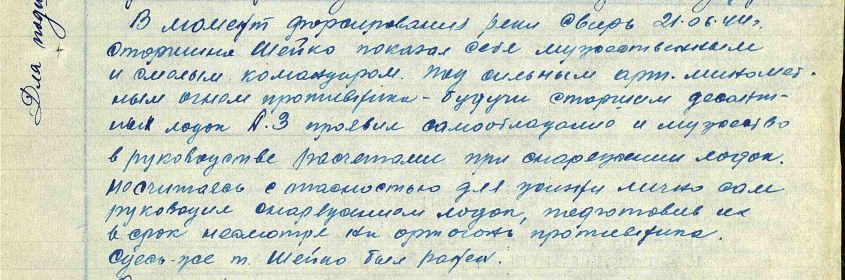 В момент форсирования реки Свирь 21.06.44г.
старшина Шейко показал себя мужественным
и смелым командиром. Под сильным арт. миномет-
ным огнем противника - будучи старшим десант-
ных лодок А.3 проявил самообладание и мужество
в руководстве расчетами при снаряжении лодок.
Не считаясь с опасностью для жизни лично сам
руководил снаряжением лодок, подготовив их
в срок несмотря на артогонь противника.
Здесь-же т. Шейко был ранен.
Для